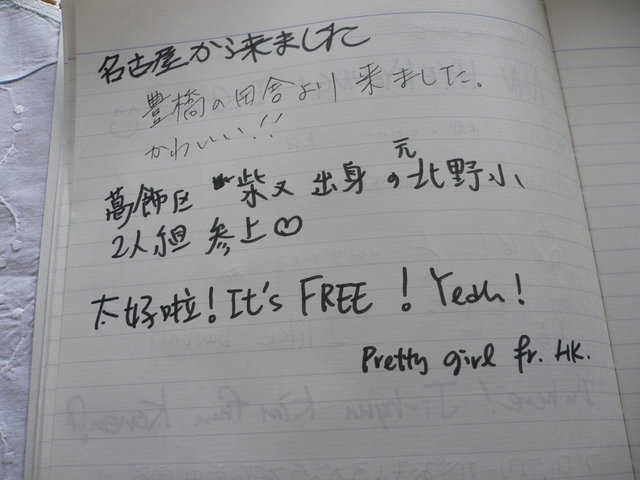 名古屋から来ました
豊橋の田舎より来ました。
かわいい!!
葛飾区 柴又 出身 の 元北野小
2人組 参上♡
太好啦! It's FREE ! Yeah !
Pretty girl fr. HK.